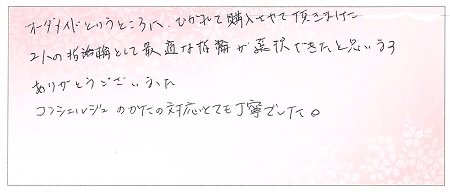 オーダメイドというところに、ひかれて購入させて頂きました
2人の指治輪として最適な指輪が選択できたと思います
ありがとうございました
コンシェルジュのかたの対応とても丁寧でした。